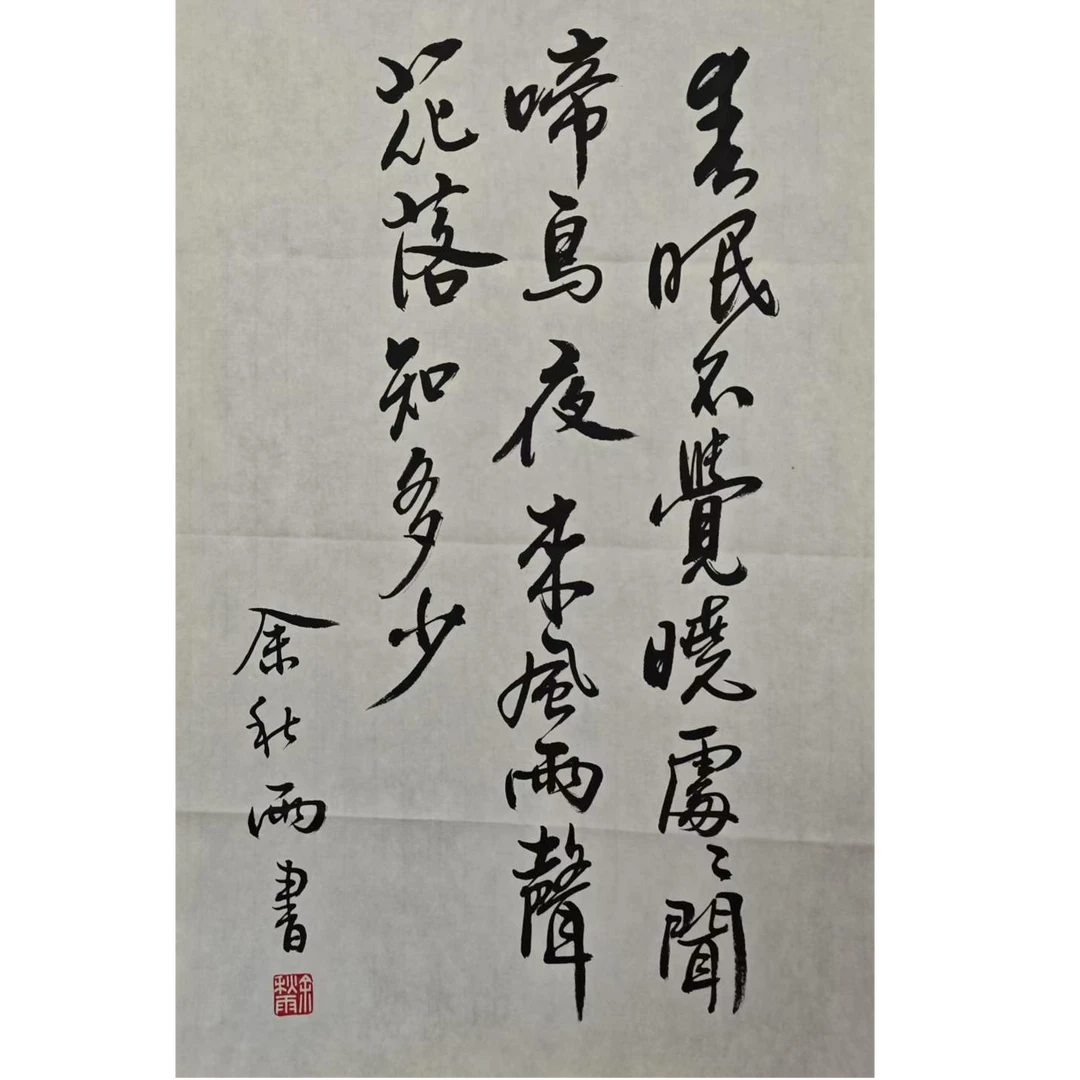 春眠不覺曉處〻聞
啼鳥夜来風雨聲
花落知多少
余秋雨書
余秋雨